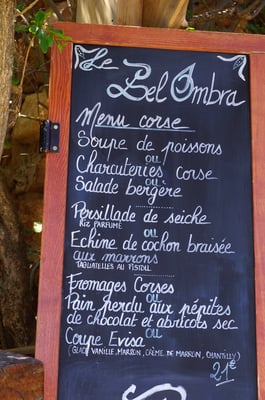 Le Bel Ombra
Menu corse
Soupe de poissons
ou
Charcuteries corse
ou
Salade bergère
Persillade de seiche
Riz parfumé
ou
Echine de cochon braisée
aux marrons
Tagliatelles au pistou
Fromages Corses
ou
Pain perdu aux pépites
de chocolat et abricots sec
ou
Coupe Evisa
(Glace vanille, marron, crème de marron, chantilly)
21€